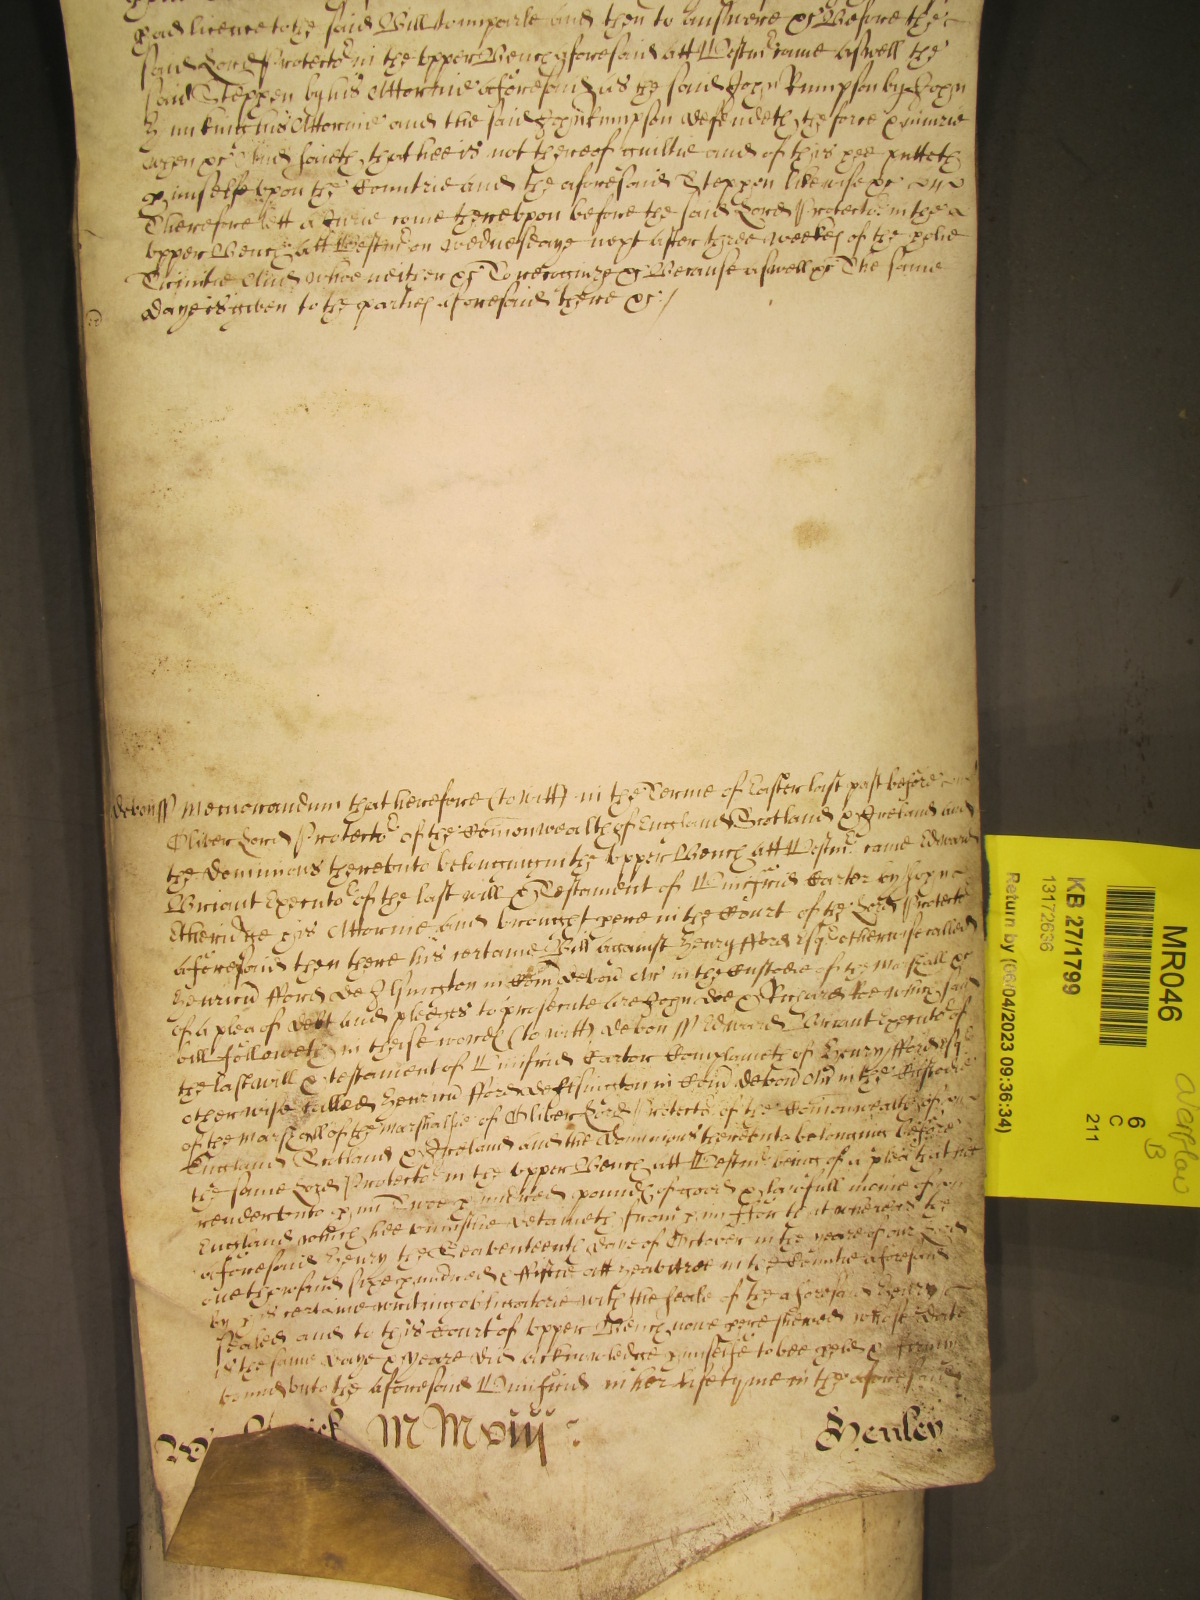 had licence to the said Bill to imparle and then to answere &c Before the
said Lord Protector in the upper Bench aforesaid att Westmr came aswell the
said Steppen by his Attornie aforesaid as the said John Kumpson by John
his Attornie and the said John Kumpson defendeth the force & iniurie
when &c And saieth that hee is not thereof guiltie and of this hee putteth
himselfe upon the Countrie and the aforesaid Steppen likewise &c
Therefore lett a Jurie come thereupon before the said Lord Protector in the
upper Bench att Westmr on wednesdaye next after three weekes of the holie
Trinitie And whoe neither &c To recognize &c Because aswell &c The same
daye is given to the parties aforesaid there &c /
Devon ss Memorandum that heretofore (to witt) in the Terme of Easter last past before
Oliver Lord Protector of the Comonwealth of England Scotland & Ireland and
the dominions thereunto belonging in the upper Bench att Westmr came Edward
Briant Executor of the last will & Testament of Winifrid Carter by John
Etheridge his Attornie and brought here in the Court of the Lord Protector
aforesaid then there his certaine Bill against Henry fford Esqr otherwise called
Henricu fford de Ilsington in Com devon Ar in the Custodie of the Marshall &c
of a plea of debt and pledges to prosecute are John doe & Richard Roe which said
bill followeth in these words (to witt) Devon ss Edward Briant Executor of
the last will & testament of Winifrid Carter Complaineth of Henry fford Esqr
otherwise called Henricu fford de Ilsington in Com devon Ar in the Custodie
of the Marshall of the Marshalsie of Oliver Lord Protector of the Comonwealth of
England Scotland & Ireland and the dominions thereunto belonging before
the same Lord Protector in the upper Bench att Westmr being of a plea that hee
render unto him Twoe hundred pounds of good & lawfull monie of
England which hee uniustlie detaineth from him ffor that whereas the
aforesaid Henry the Seaventeenth daye of October in the yeare of our Lord
one thowsand sixe hundred & ffiftie att Heavitree in the Countie aforesaid
by his certaine writing obligatorie with the seale of the aforesaid Henry
sealed and to this Court of upper Bench nowe here shewed whose date
is the same daye & yeare did acknowledge himselfe to bee held & firmly
bound unto the aforesaid Winifrid in her lifetyme in the aforesaid
M M Henley
MR046
6
C
211
KB 27/1799
13172636
Return by (06/04/2023 09:36:34)
overflow
B